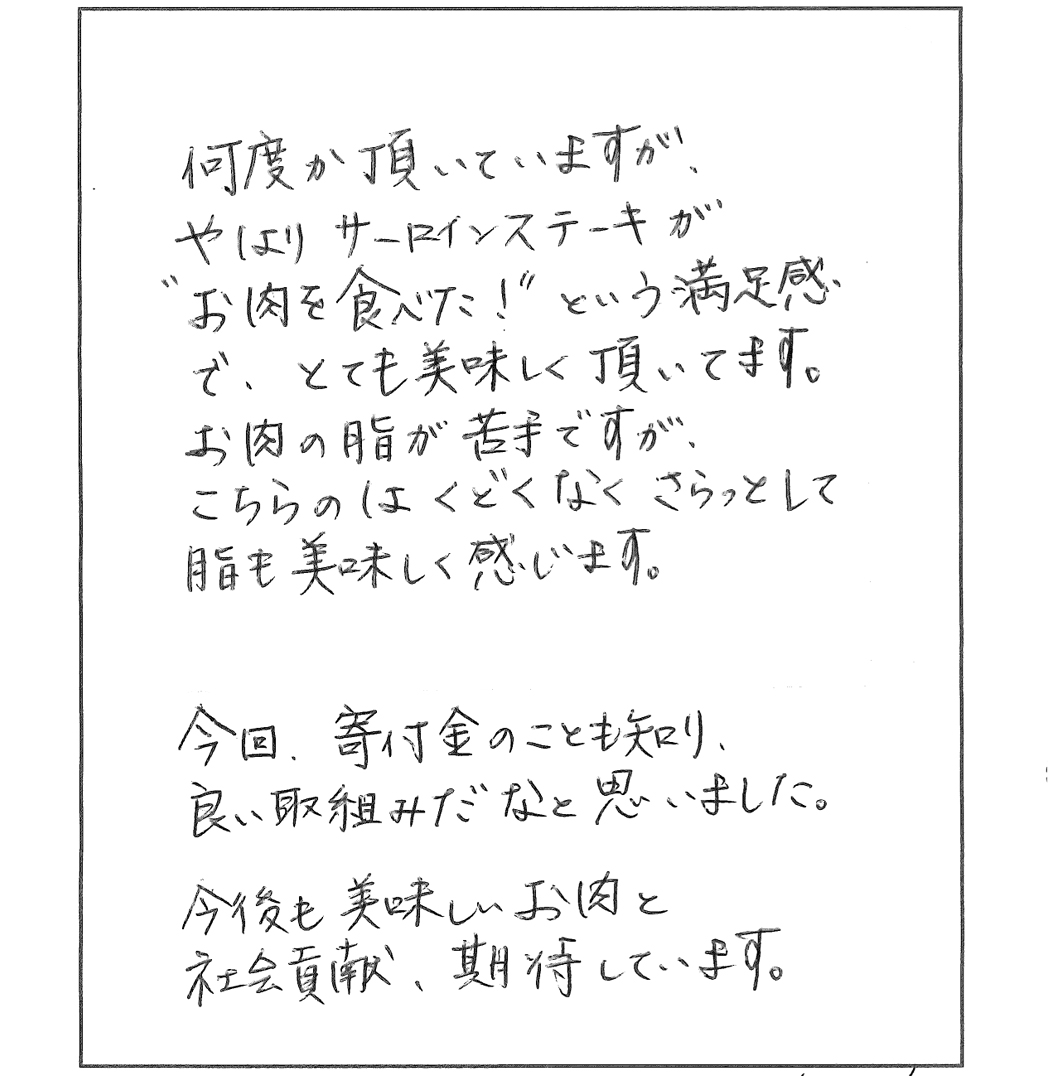 何度か頂いていますが、
やはりサーロインステーキが
"お肉を食べた！"という満足感
で、とても美味しく頂いてます。
お肉の脂が苦手ですが、
こちらのはくどくなくさらっとして
脂も美味しく感じます。
今回、寄付金のことも知り、
良い取組みだなと思いました。
今後も美味しいお肉と
社会貢献、期待しています。